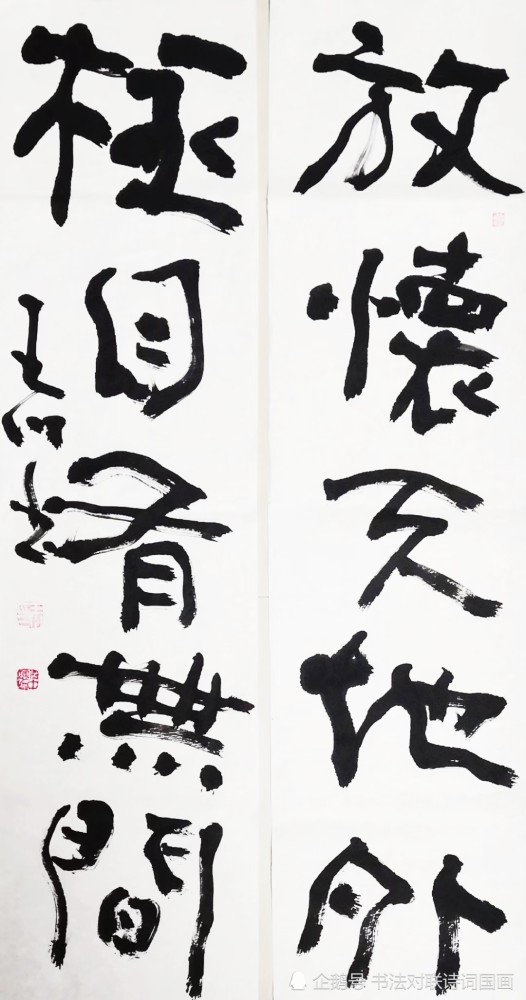 放懷天地外
極目有無間
企鹅号 书法对联诗词国画